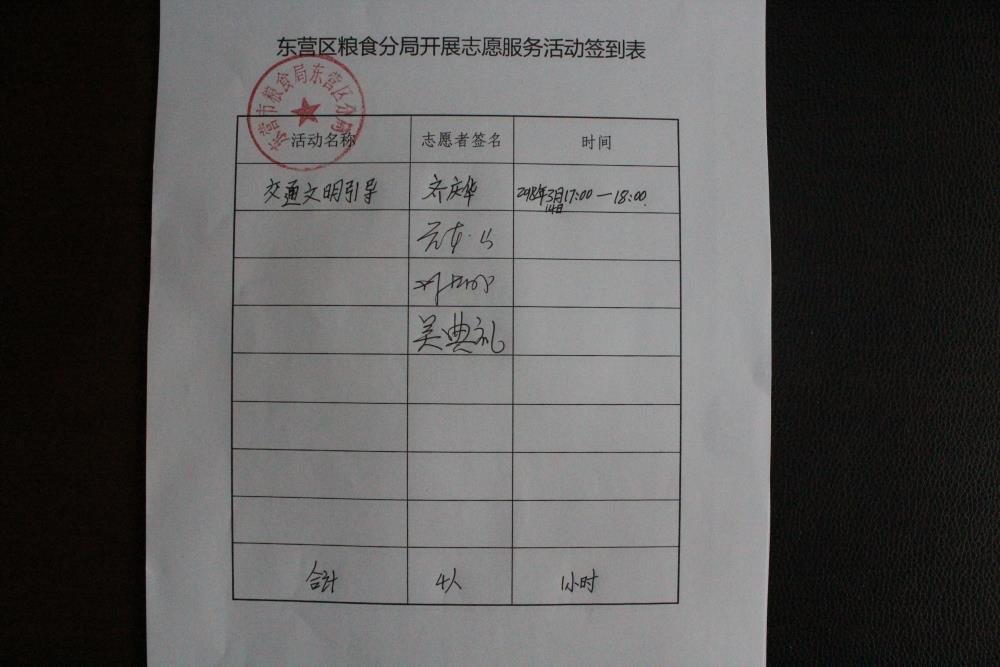 东营区粮食分局开展志愿服务活动签到表
东营市粮食局东营区分局
活动名称 志愿者签名 时间
交通文明引导 齐庆华 2018年3月14日17:00—18:00
吴典礼
合计 4人 1小时